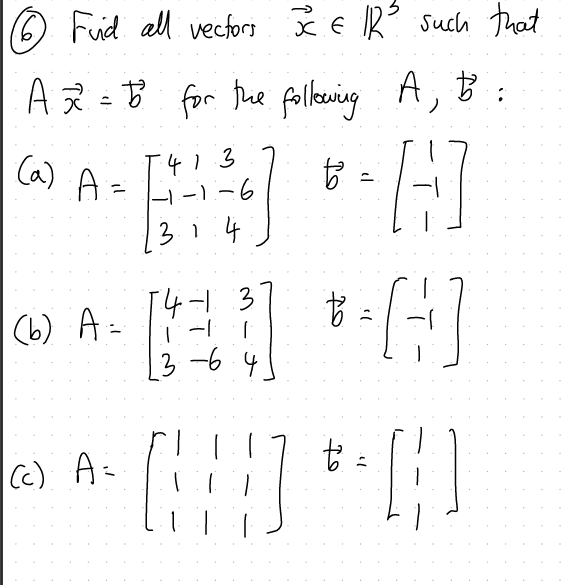 ⑥ Find all vectors x⃗ ∈ ℝ³ such that
A x⃗ = b⃗ for the following A, b⃗ :
(a) A = [4 1 3; -1 -1 -6; 3 1 4] b⃗ = [1; -1; 1]
(b) A = [4 -1 3; 1 -1 1; 3 -6 4] b⃗ = [1; -1; 1]
(c) A = [1 1 1; 1 1 1; 1 1 1] b⃗ = [1; 1; 1]